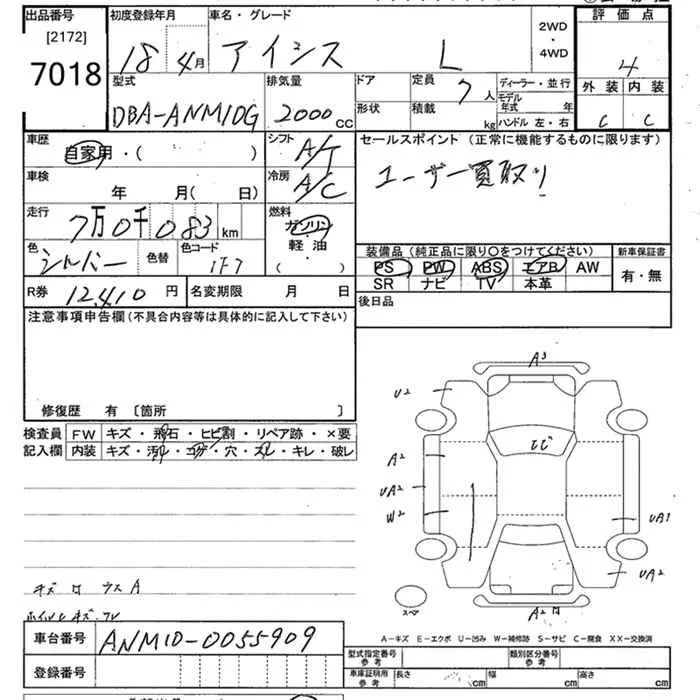 出品番号 初度登録年月 車名・グレード 2WD・4WD 評価点
[2172]
7018 18 4月 アイシス L 4
型式 排気量 ドア 定員 7人 ディーラー・並行 外装 内装
DBA-ANM10G 2000cc 形状 積載 kg モデル年式 年 C C
ハンドル 左・右
車歴 自家用・( ) シフト A/T セールスポイント (正常に機能するものに限ります)
車検 年 月( 日) 冷房 A/C ユーザー買取り
走行 7万0千083km 燃料 ガソリン
色 シルバー 色替 色コード 1F7 軽油 ( )
装備品(純正品に限り○をつけてください) 新車保証書
PS PW ABS エアB AW 有・無
SR ナビ TV 本革
R券 12,410円 名変期限 月 日 後日品
注意事項申告欄(不具合内容等は具体的に記入して下さい)
修復歴 有 〔箇所 〕
検査員 FW キズ・飛石・ヒビ割・リペア跡・×要
記入欄 内装 キズ・汚れ・コゲ・穴・スレ・キレ・破レ
A3
U2
ヒビ
A2
UA2
W2
UA1
UA2
スペア
A2
A-キズ E-エクボ U-凹み W-補修跡 S-サビ C-腐食 XX-交換済
車台番号 ANM10-0055909
登録番号
型式指定番号 参考 類別区分番号 参考
車庫証明用 参考 長さ cm 幅 cm 高さ cm